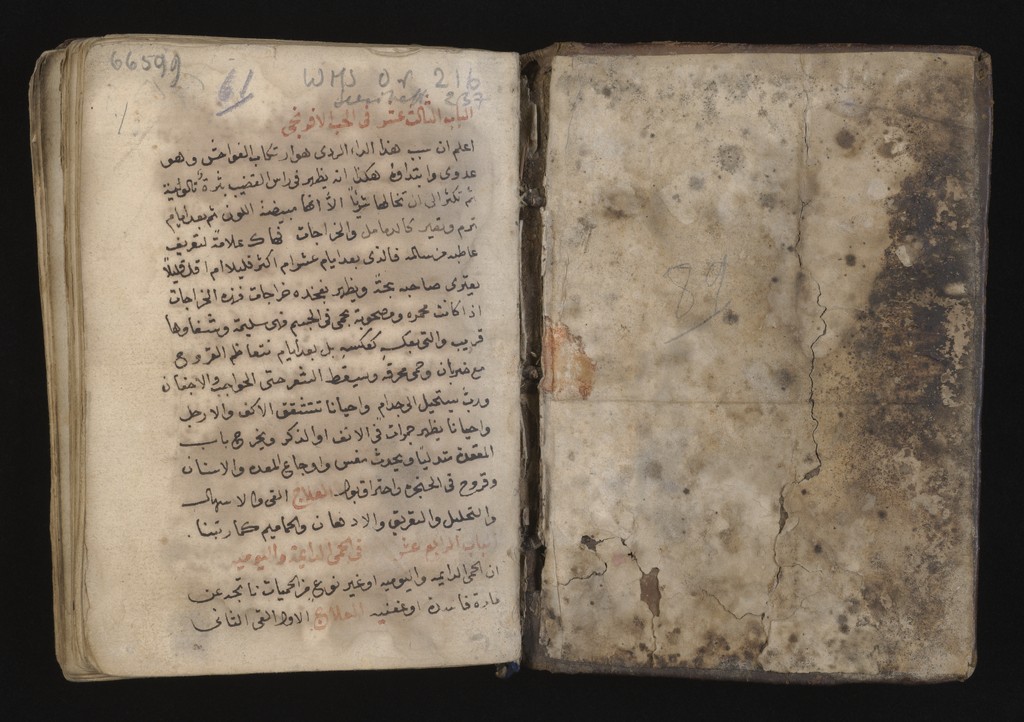 66599
WMS Or 216
237
الباب الثالث عشر فى الحب الافرنجى
اعلم ان سبب هذا الداء الردى هو ارتكاب الفواحش وهو
عدوى وابتداوه هكذا انه يظهر فى راس القضيب بثرة كالولبية
ثم تكثر الى ان تخالها شريًا الا انها مبيضة اللون ثم بعد ايام
ترم وتصير كالدمامل والخراجات فهاك علامة لتعريف
فالذى بعد ايام عشر ام اكثر قليلا ام اقل قليلًا
يعترى صاحبه بحة ويظهر بفخذه خراجات فهذه الخراجات
اذا كانت محمره ومصحوبة بحمى فى الجسم فهى سليمة وشفاوها
قريب والتى بعكسه كعكسه بل بعد ايام تتعاظم القروح
مع ضربان وحمى محرقه وسيقط الشعر حتى الحواجب والاجفان
وربّ يستحيل الى جدام واحيانا تتشقق الاكف والارجل
واحيانا يظهر جمرات فى الانف او الذكر ويخرج باب
المقعدة متدليًا ويحدث نفس واوجاع المعده والاسنان
وقروح فى الحنجره واحتراق بول العلاج القى والاسهال
والتحليل والتعريق والادهان والحماميم كما رتبنا.
الباب الرابع عشر فى الحمى الدايمة واليوميه
ان الحمى الدايمه واليوميه او غير نوع من الحميات ناتجه عن
مادة فاسدة او عفنيه العلاج الاول القى الثانى
89